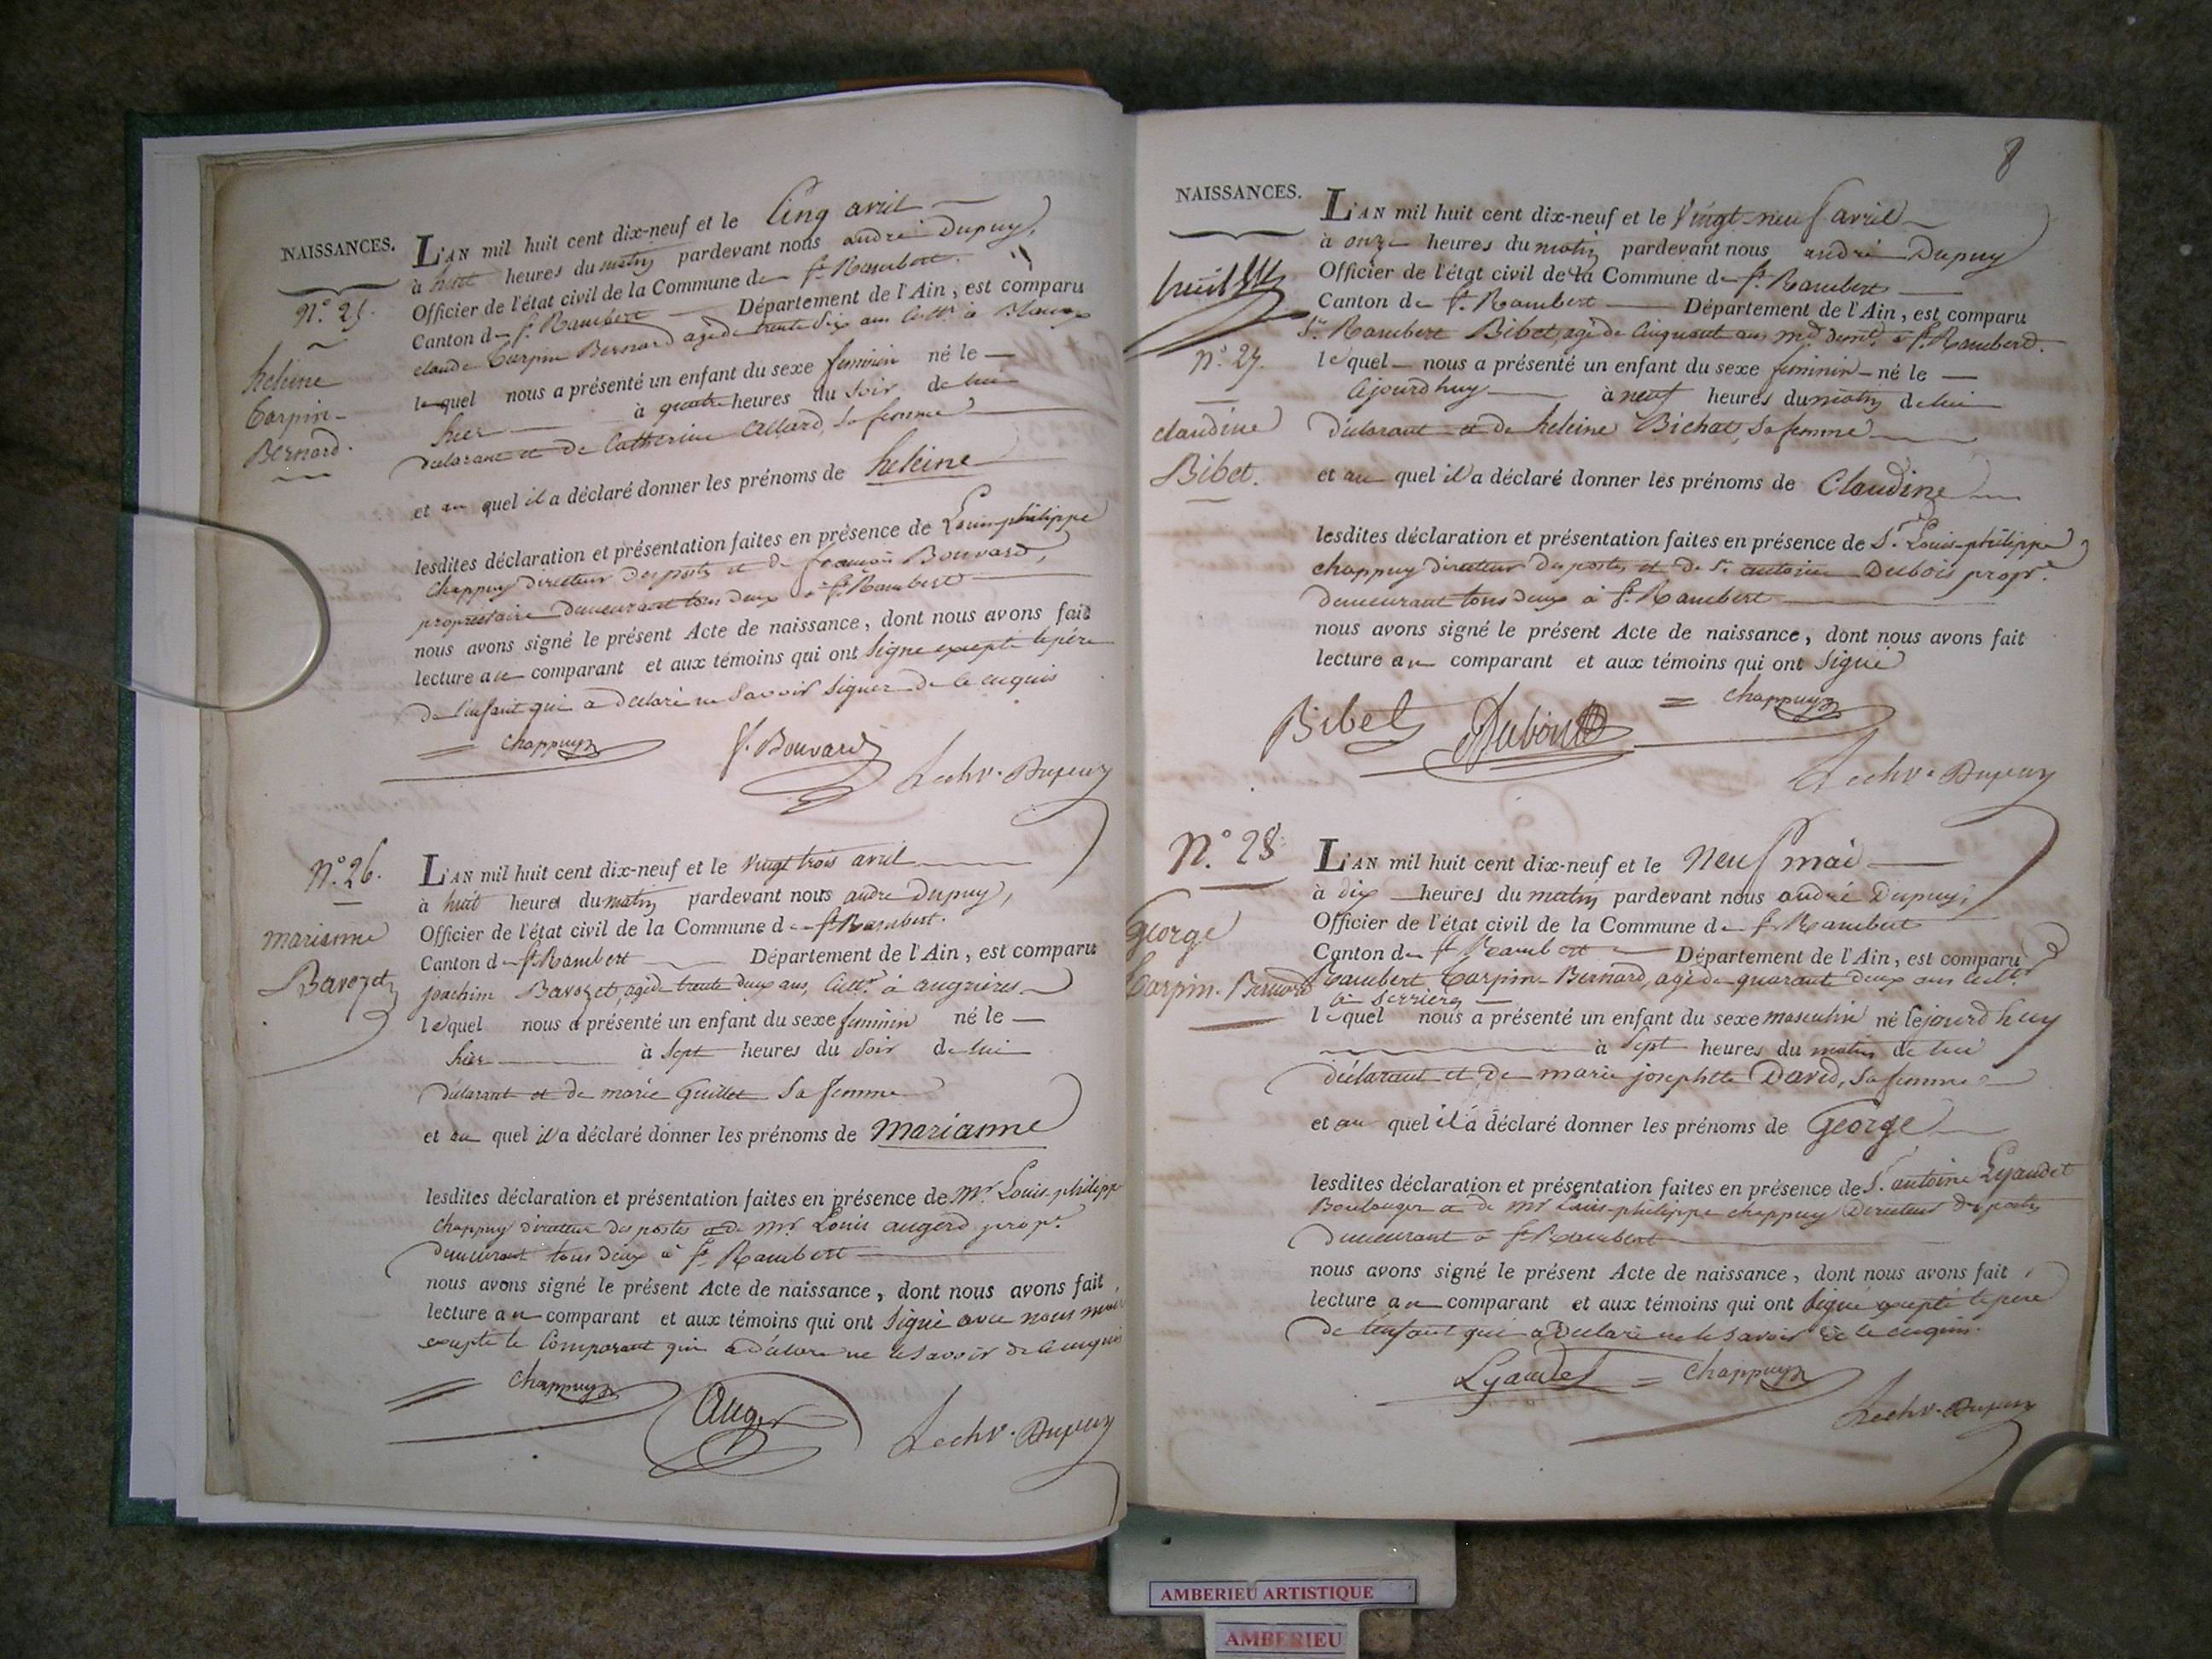 NAISSANCES.
N.° 25.
heleine
Carpin-
Bernard.
L'AN mil huit cent dix-neuf et le Cinq avril
à huit heures du matin pardevant nous andré Dupuy,
Officier de l'état civil de la Commune de St. Rambert.
Canton de St. Rambert Département de l'Ain, est comparu
claude Carpin Bernard agé de trente six ans Cultr. à
lequel nous a présenté un enfant du sexe feminin né le
hier à quatre heures du soir de lui
déclarant et de Catherine Allard, sa femme
et au quel il a déclaré donner les prénoms de heleine
lesdites déclaration et présentation faites en présence de Louis-philippe
Chappuy directeur des postes et de françois Bouvard,
proprietaire demeurant tous deux à St. Rambert
nous avons signé le présent Acte de naissance, dont nous avons fait
lecture au comparant et aux témoins qui ont signé excepté le père
de l'enfant qui a déclaré ne savoir signer de ce enquis
chappuy f. Bouvard Dupuy
N.° 26.
marianne
Bavozet
L'AN mil huit cent dix-neuf et le vingt trois avril
à huit heures du matin pardevant nous andré Dupuy,
Officier de l'état civil de la Commune de St. Rambert.
Canton de St. Rambert Département de l'Ain, est comparu
joachim Bavozet, agé de trente deux ans, Cultr. à angrieres
lequel nous a présenté un enfant du sexe feminin né le
hier à sept heures du soir de lui
déclarant et de marie Guillet sa femme
et au quel il a déclaré donner les prénoms de Marianne
lesdites déclaration et présentation faites en présence de Mr. Louis-philippe
Chappuy directeur des postes et de Mr. Louis augerd propr.
demeurant tous deux à St. Rambert
nous avons signé le présent Acte de naissance, dont nous avons fait
lecture au comparant et aux témoins qui ont signé avec nous maire
excepté le Comparant qui a déclaré ne le savoir de ce enquis
chappuy Auger Dupuy
8
NAISSANCES.
N.° 27.
claudine
Bibet.
L'AN mil huit cent dix-neuf et le Vingt-neuf avril
à onze heures du matin pardevant nous andré Dupuy
Officier de l'état civil de la Commune de St. Rambert
Canton de St. Rambert Département de l'Ain, est comparu
Sr. Rambert Bibet, agé de Cinquante ans md. demt. à St. Rambert.
lequel nous a présenté un enfant du sexe feminin né le
ajourdhuy à neuf heures du matin de lui
déclarant et de heleine Bichat, sa femme
et au quel il a déclaré donner les prénoms de Claudine
lesdites déclaration et présentation faites en présence de Sr. Louis-philippe
chappuy directeur des postes et de Sr. antoine Dubois propr.
demeurant tous deux à St. Rambert
nous avons signé le présent Acte de naissance, dont nous avons fait
lecture au comparant et aux témoins qui ont signé
Bibet Dubois chappuy
Dupuy
N.° 28
George
Carpin-Bernard
L'AN mil huit cent dix-neuf et le Neuf mai
à dix heures du matin pardevant nous andré Dupuy,
Officier de l'état civil de la Commune de St. Rambert
Canton de St. Rambert Département de l'Ain, est comparu
Rambert Carpin-Bernard, agé de quarante deux ans Cultr.
à Serrieres
lequel nous a présenté un enfant du sexe masculin né le jourd'huy
à sept heures du matin de lui
déclarant et de marie josephte David, sa femme
et au quel il a déclaré donner les prénoms de George
lesdites déclaration et présentation faites en présence de S. antoine Lyaudet
Boulanger et de Mr Louis-philippe chappuy Directeur des postes
demeurant à St. Rambert
nous avons signé le présent Acte de naissance, dont nous avons fait
lecture au comparant et aux témoins qui ont signé excepté le père
de l'enfant qui a déclaré ne le savoir de ce enquis.
Lyaudet chappuy
Dupuy
AMBERIEU ARTISTIQUE
AMBERIEU